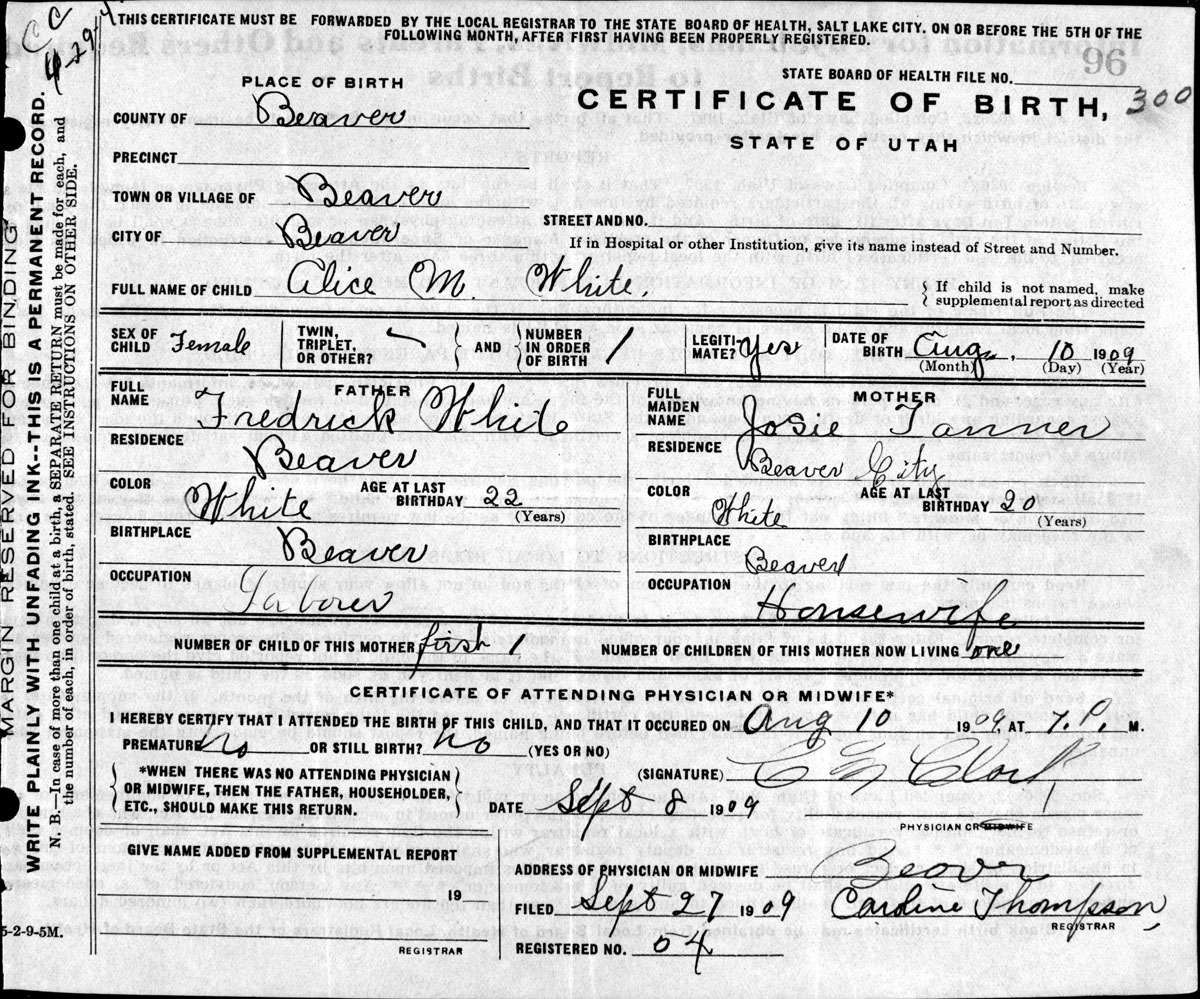 THIS CERTIFICATE MUST BE FORWARDED BY THE LOCAL REGISTRAR TO THE STATE BOARD OF HEALTH, SALT LAKE CITY. ON OR BEFORE THE 5TH OF THE
FOLLOWING MONTH, AFTER FIRST HAVING BEEN PROPERLY REGISTERED.
MARGIN RESERVED FOR BINDING
WRITE PLAINLY WITH UNFADING INK--THIS IS A PERMANENT RECORD.
N. B.—In case of more than one child at a birth, a SEPARATE RETURN must be made for each, and
the number of each, in order of birth, stated. SEE INSTRUCTIONS ON OTHER SIDE.
5-2-9-5M.
PLACE OF BIRTH
STATE BOARD OF HEALTH FILE NO.
96
CERTIFICATE OF BIRTH, 300
STATE OF UTAH
COUNTY OF Beaver
PRECINCT
TOWN OR VILLAGE OF Beaver
STREET AND NO.
CITY OF Beaver
If in Hospital or other Institution, give its name instead of Street and Number.
FULL NAME OF CHILD Alice M. White.
If child is not named, make
supplemental report as directed
SEX OF CHILD Female
TWIN, TRIPLET, OR OTHER?
AND
NUMBER IN ORDER OF BIRTH 1
LEGITIMATE? yes
DATE OF BIRTH Aug. 10 1909
(Month) (Day) (Year)
FATHER
FULL NAME Fredrick White
RESIDENCE Beaver
COLOR White AGE AT LAST BIRTHDAY 22
(Years)
BIRTHPLACE Beaver
OCCUPATION Laborer
MOTHER
FULL MAIDEN NAME Josie Tanner
RESIDENCE Beaver City
COLOR White AGE AT LAST BIRTHDAY 20
(Years)
BIRTHPLACE Beaver
OCCUPATION Housewife
NUMBER OF CHILD OF THIS MOTHER first 1
NUMBER OF CHILDREN OF THIS MOTHER NOW LIVING one
CERTIFICATE OF ATTENDING PHYSICIAN OR MIDWIFE*
I HEREBY CERTIFY THAT I ATTENDED THE BIRTH OF THIS CHILD, AND THAT IT OCCURED ON Aug 10 1909 AT 7. M.
PREMATURE No OR STILL BIRTH? No (YES OR NO)
*WHEN THERE WAS NO ATTENDING PHYSICIAN
OR MIDWIFE, THEN THE FATHER, HOUSEHOLDER,
ETC., SHOULD MAKE THIS RETURN.
(SIGNATURE)
DATE Sept 8 1909
PHYSICIAN OR MIDWIFE
GIVE NAME ADDED FROM SUPPLEMENTAL REPORT
19
REGISTRAR
ADDRESS OF PHYSICIAN OR MIDWIFE Beaver
FILED Sept 21 1909 Caroline Thompson,
REGISTRAR
REGISTERED NO. 54